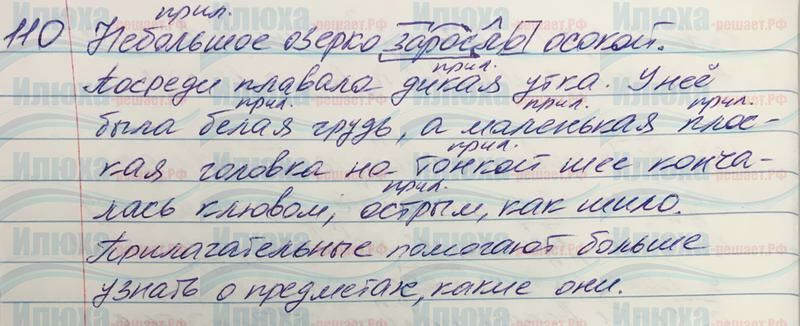 прил.
110 Небольшое озерко заросло осокой.
прил.
Посреди плавала дикая утка. У неё
прил. прил. прил.
была белая грудь, а маленькая плос-
прил.
кая головка на тонкой шее конча-
прил.
лась клювом, острым, как шило.
Прилагательные помогают больше
узнать о предметах, какие они.